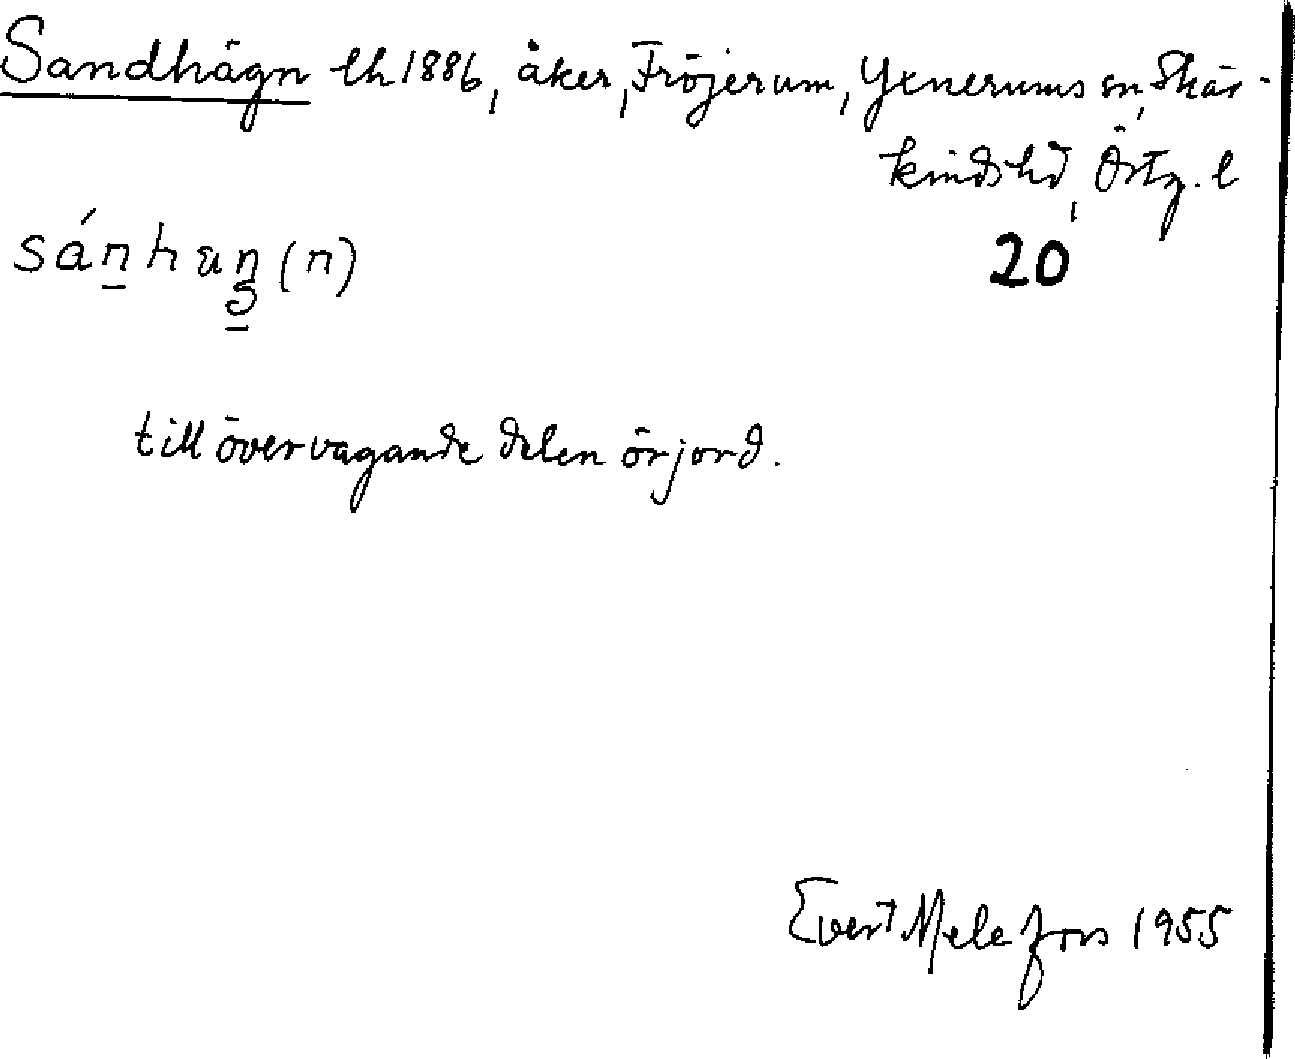 Sandhägn lh 1886, åker, Fröjerum, Yxnerums sn, Skär-
kinds hd, Östg. l
20
till övervägande delen örjord.
Evert Melefors 1955